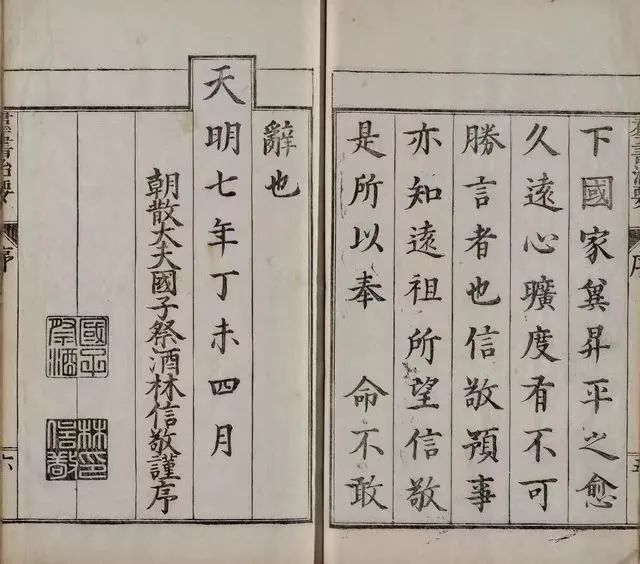 群書治要 序 五
下國家冀昇平之愈
久遠心曠度有不可
勝言者也信敬預事
亦知遠祖所望信敬
是所以奉　命不敢
辭也
天明七年丁未四月
朝散大夫國子祭酒林信敬謹序
國子祭酒
林印信敬
群書治要 序 六